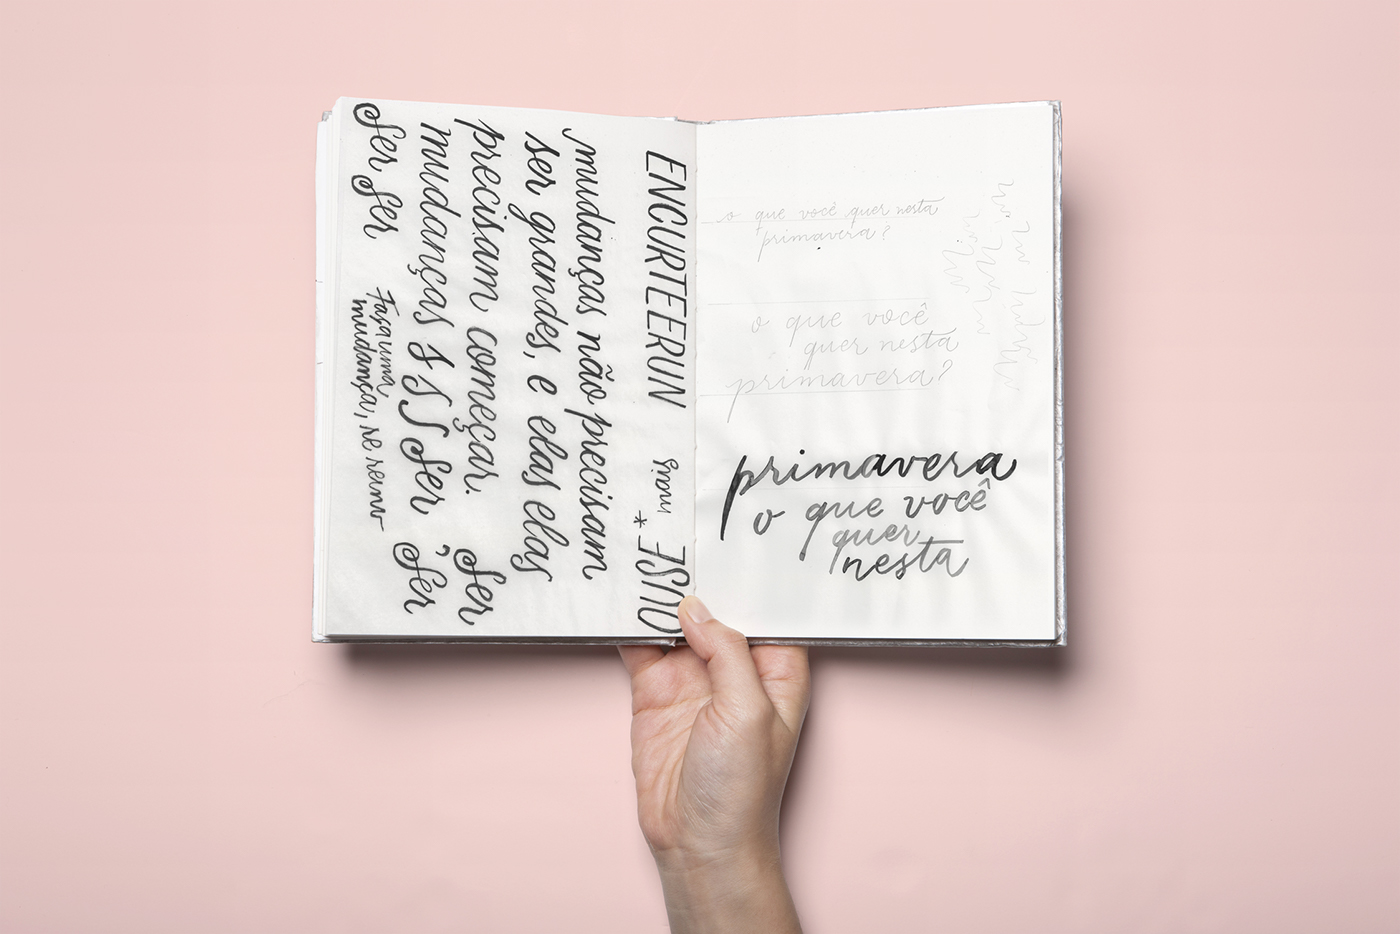 ENCURTEERUN
mais
*
OUSE
mudanças não precisam
ser grandes, e elas elas
precisam começar. Ser
mudanças S S S Ser, Ser
Ser Ser
Faça uma
mudança, se
o que você quer nesta
primavera?
o que você
quer nesta
primavera?
primavera
o que você
quer
nesta